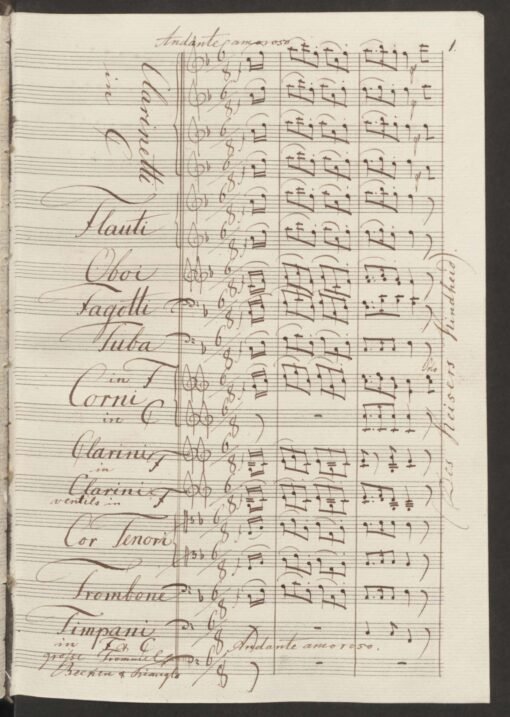 Andante amoroso
1.
Clarinetti
in C
Flauti
Oboi
Fagotti
Tuba
in F
Corni
in C
Clarini F
in
Clarini F
ventils in
Cor Tenori
Trombone
Timpani
in F & C
Andante amoroso.
grosse Trommel
Becken & Triangle
Des Kaisers Kindheid.